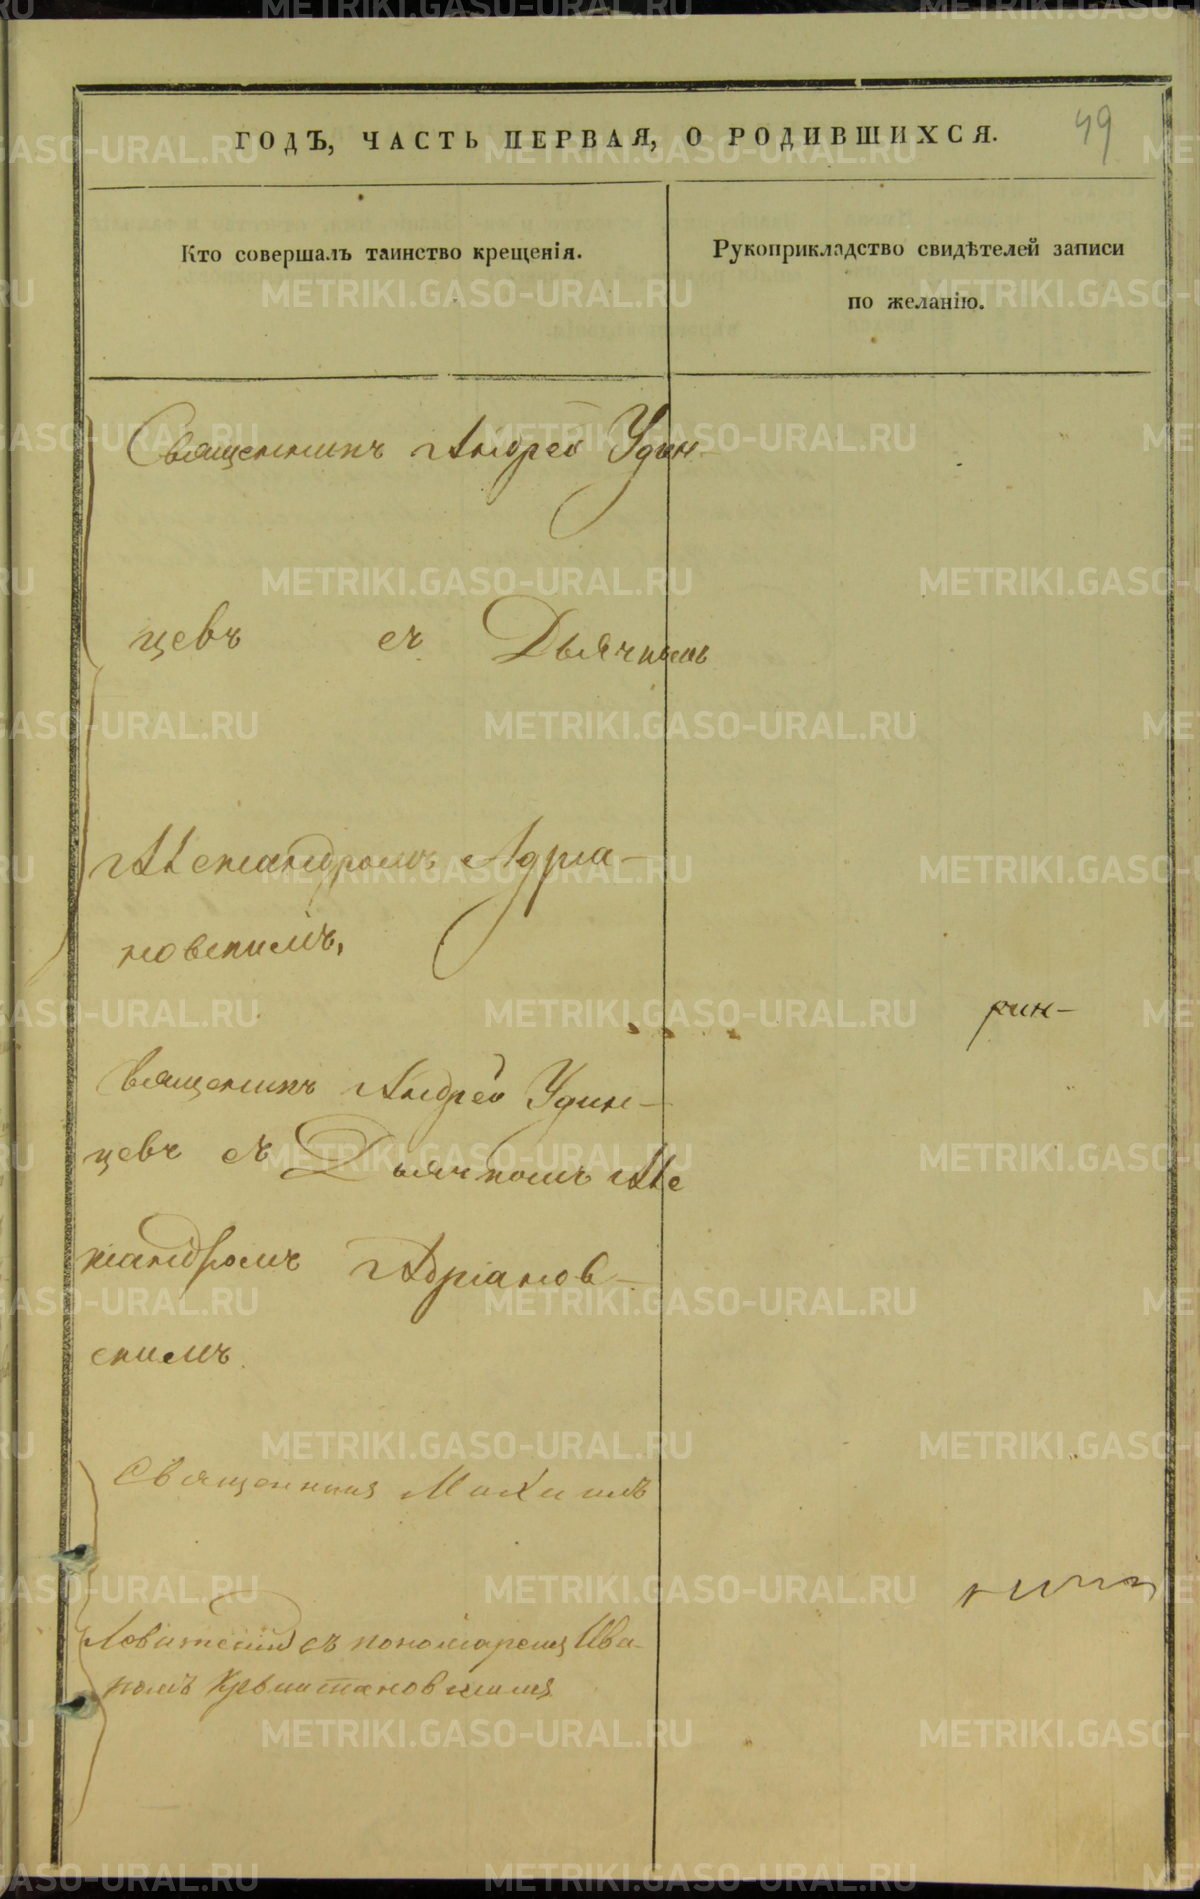 ГОДЪ, ЧАСТЬ ПЕРВАЯ, О РОДИВШИХСЯ.
49
Кто совершалъ таинство крещенія.
Рукоприкладство свидѣтелей записи
по желанію.
Священникъ Андрей Удин-
цевъ съ Дьячкомъ
Александромъ Адріа-
новскимъ,
рин-
Священникъ Андрей Удин-
цевъ съ Дьячкомъ Але
ксандромъ Адріанов-
скимъ.
Священникъ
съ пономаремъ
METRIKI.GASO-URAL.RU